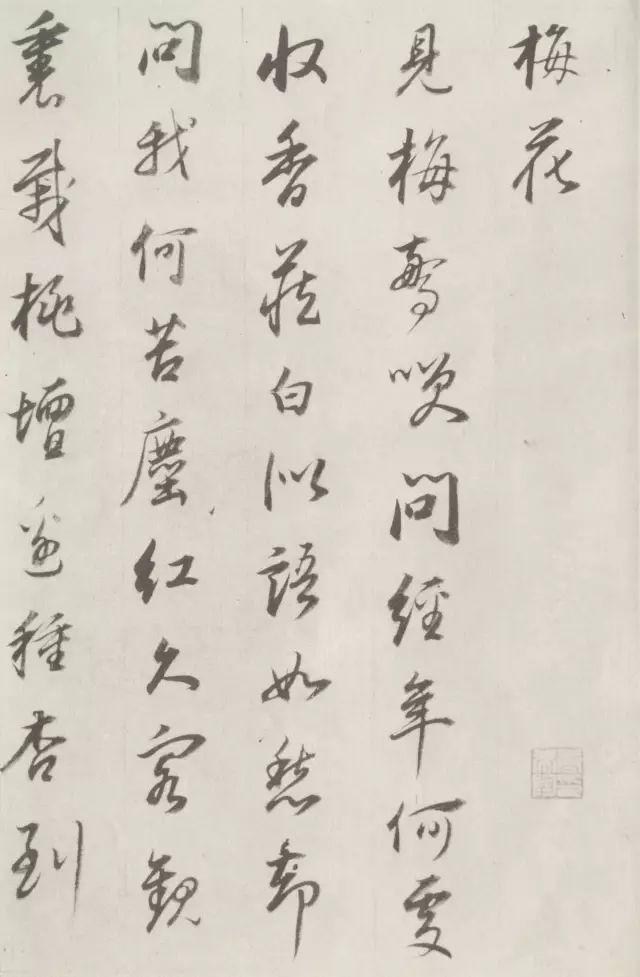 梅花
見梅驚咲問經年何處
收香藏白似語如愁卻
問我何苦塵紅久客觀
裏栽桃壇邊種杏到